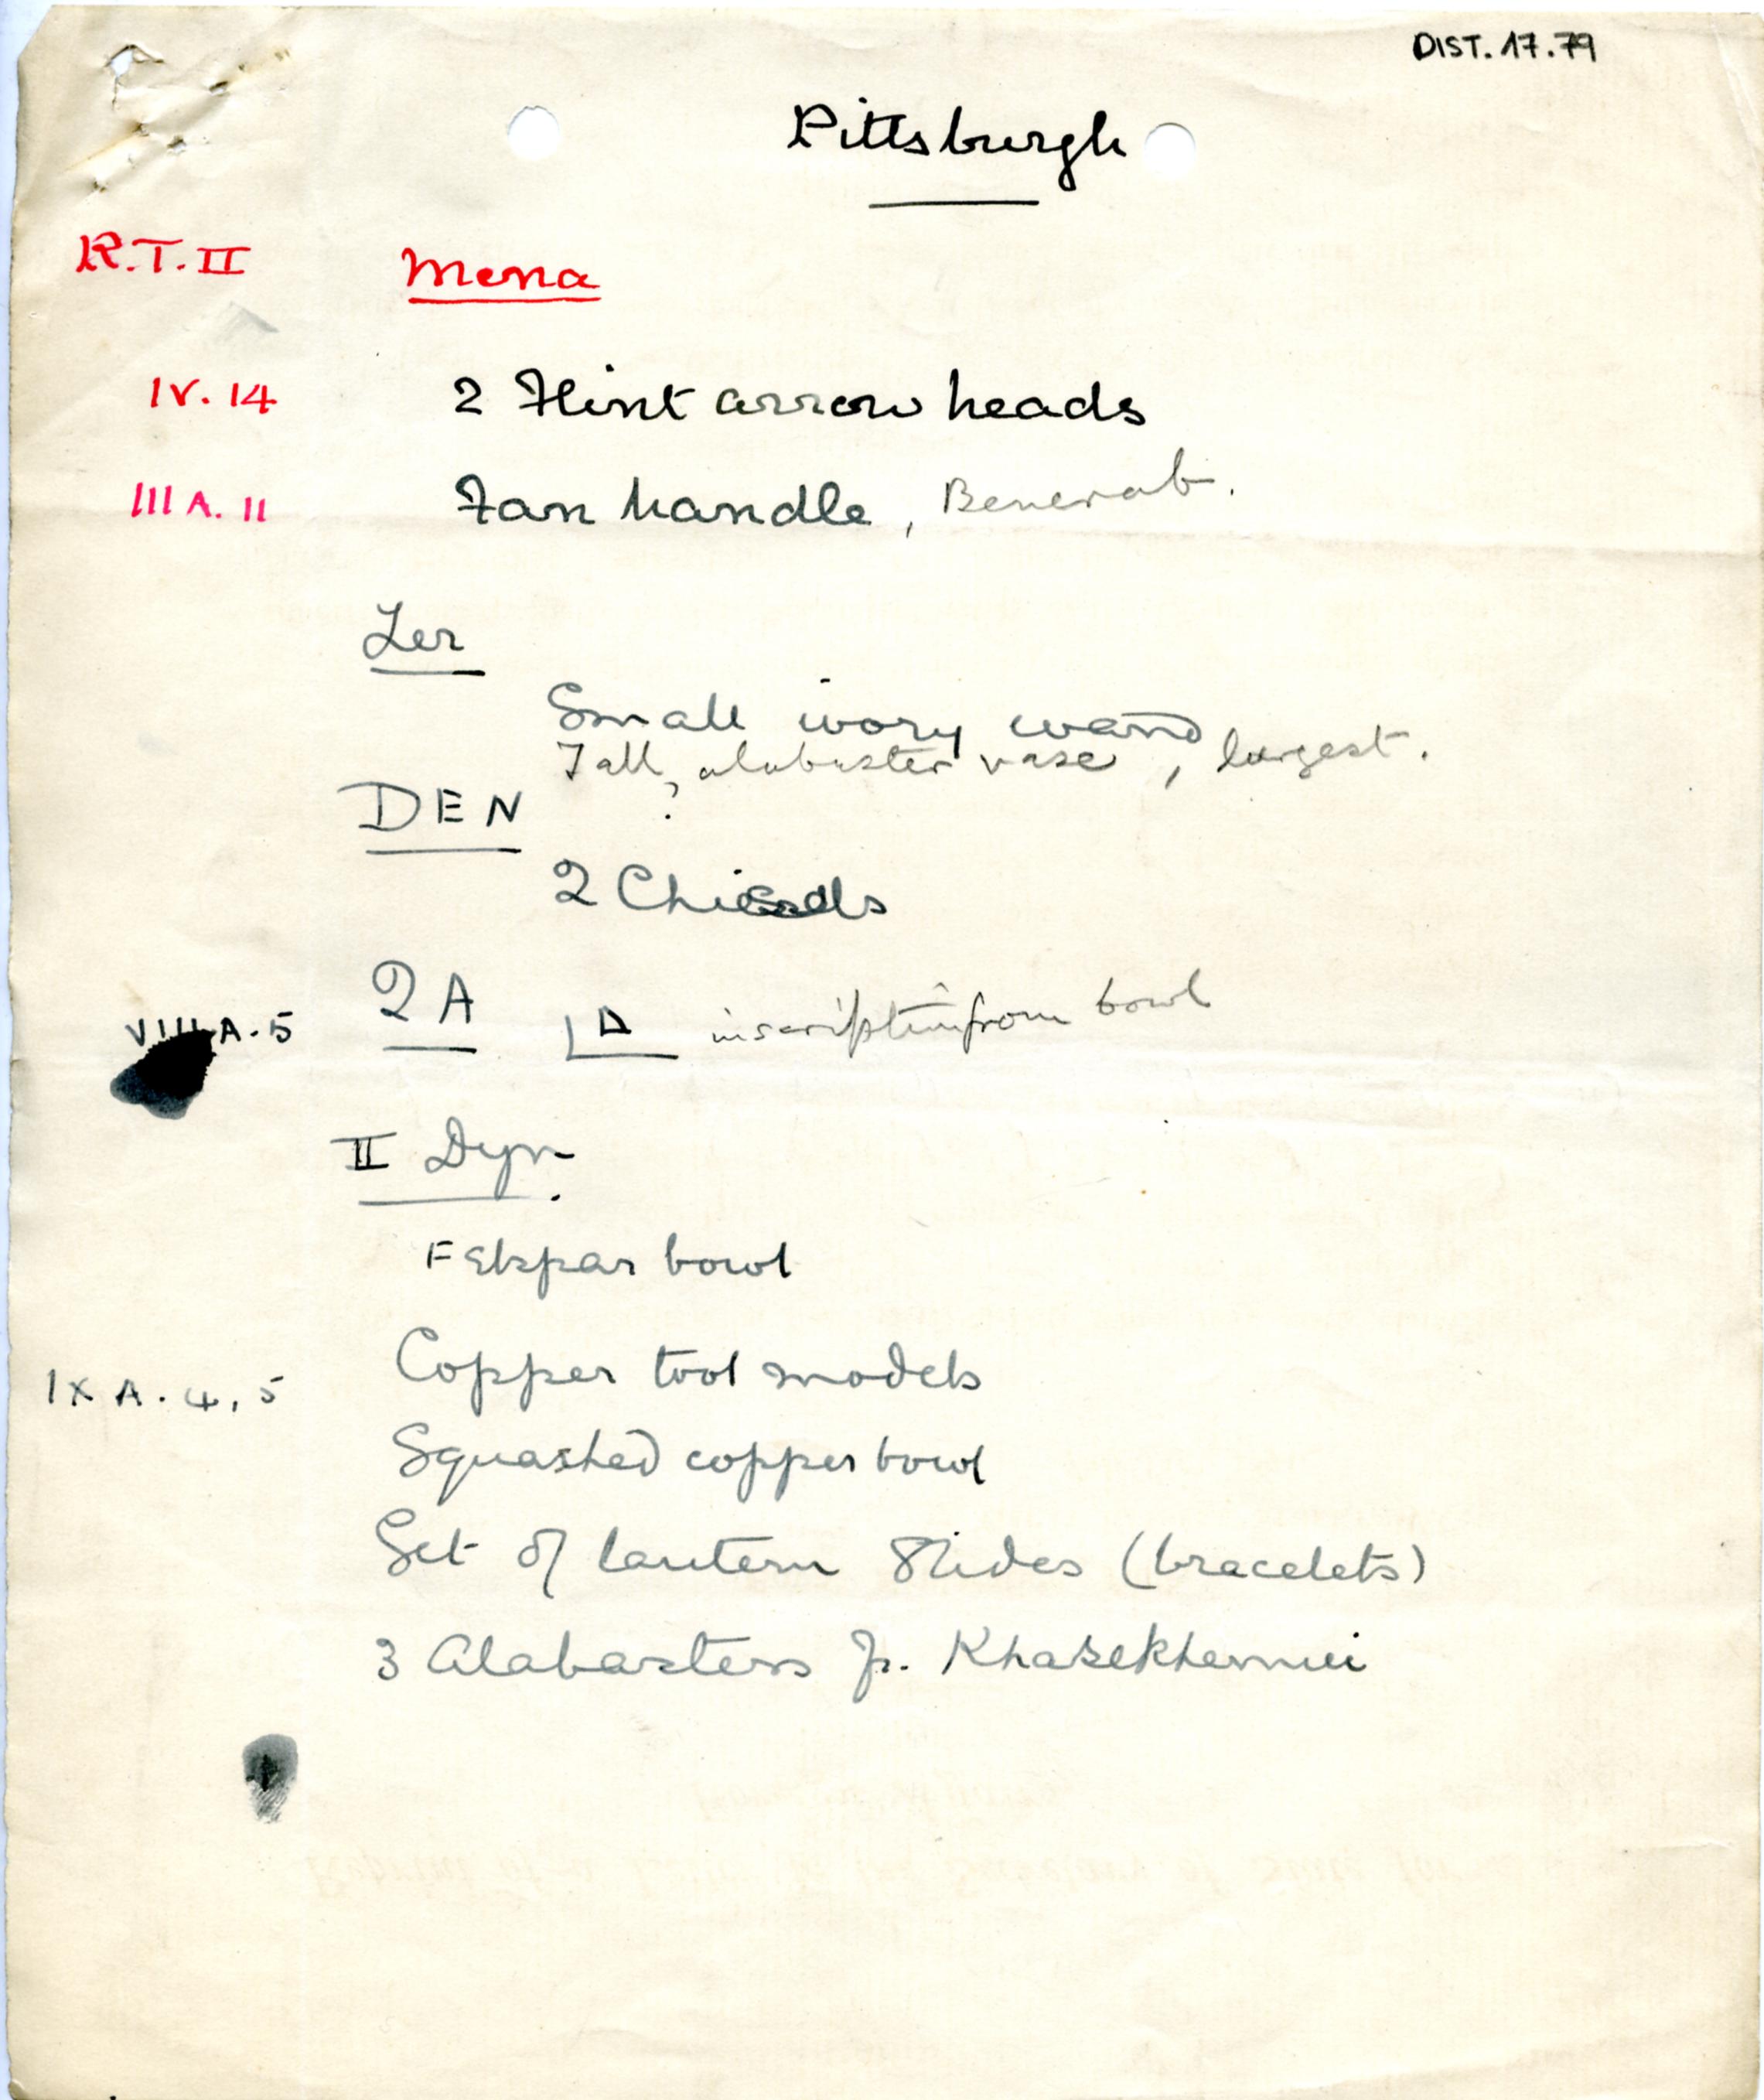 DIST. 17.79
Pittsburgh
R.T. II Mena
IV. 14 2 Flint arrow heads
III A. 11 Fan handle, Benerab.
Zer
Small ivory wand
Tall, alabaster vase, largest.
?
DEN
2 Chisels
VIII A. 5 QA inscription from bowl
II Dyn.
Felspar bowl
IX A. 4, 5 Copper tool models
Squashed copper bowl
Set of lantern slides (bracelets)
3 Alabasters fr. Khasekhemui